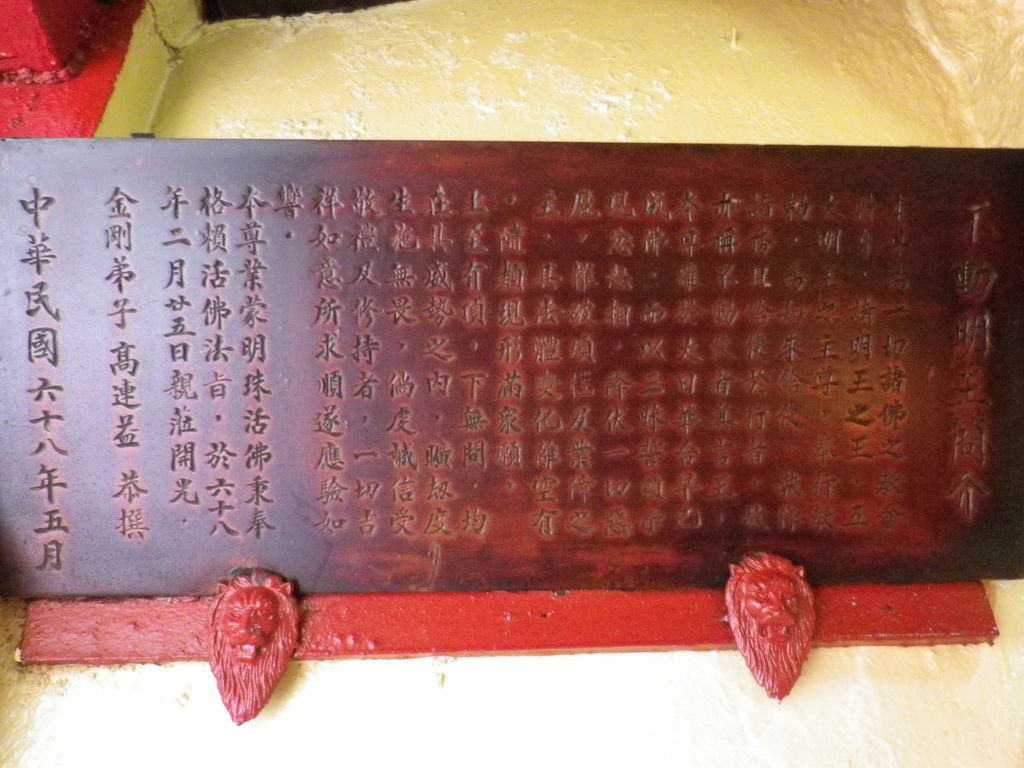 不動明王簡介
本尊為一切諸佛之教令
輪身，持明王之王，五
大明王之主尊。奉行教
勅，為如來給使，或作
諸佛
亦稱不動使者真言王，
本尊雖於大日華台早已
成佛，而以三昧誓願示
現忿怒相，降伏一切惡
魔，摧破煩惱及業障之
主，其法體變化離空有
，隨類現形滿眾願，
上至有頂，下無間，均
在具威勢之內，曠劫度
生施無畏，倘虔誠信受
敬禮及修持者，一切吉
祥如意所求順遂應驗如
響。
本尊業蒙明珠活佛秉奉
格賴活佛法旨，於六十八
年二月廿五日親蒞開光．
金剛弟子高連益 恭撰
中華民國六十八年五月